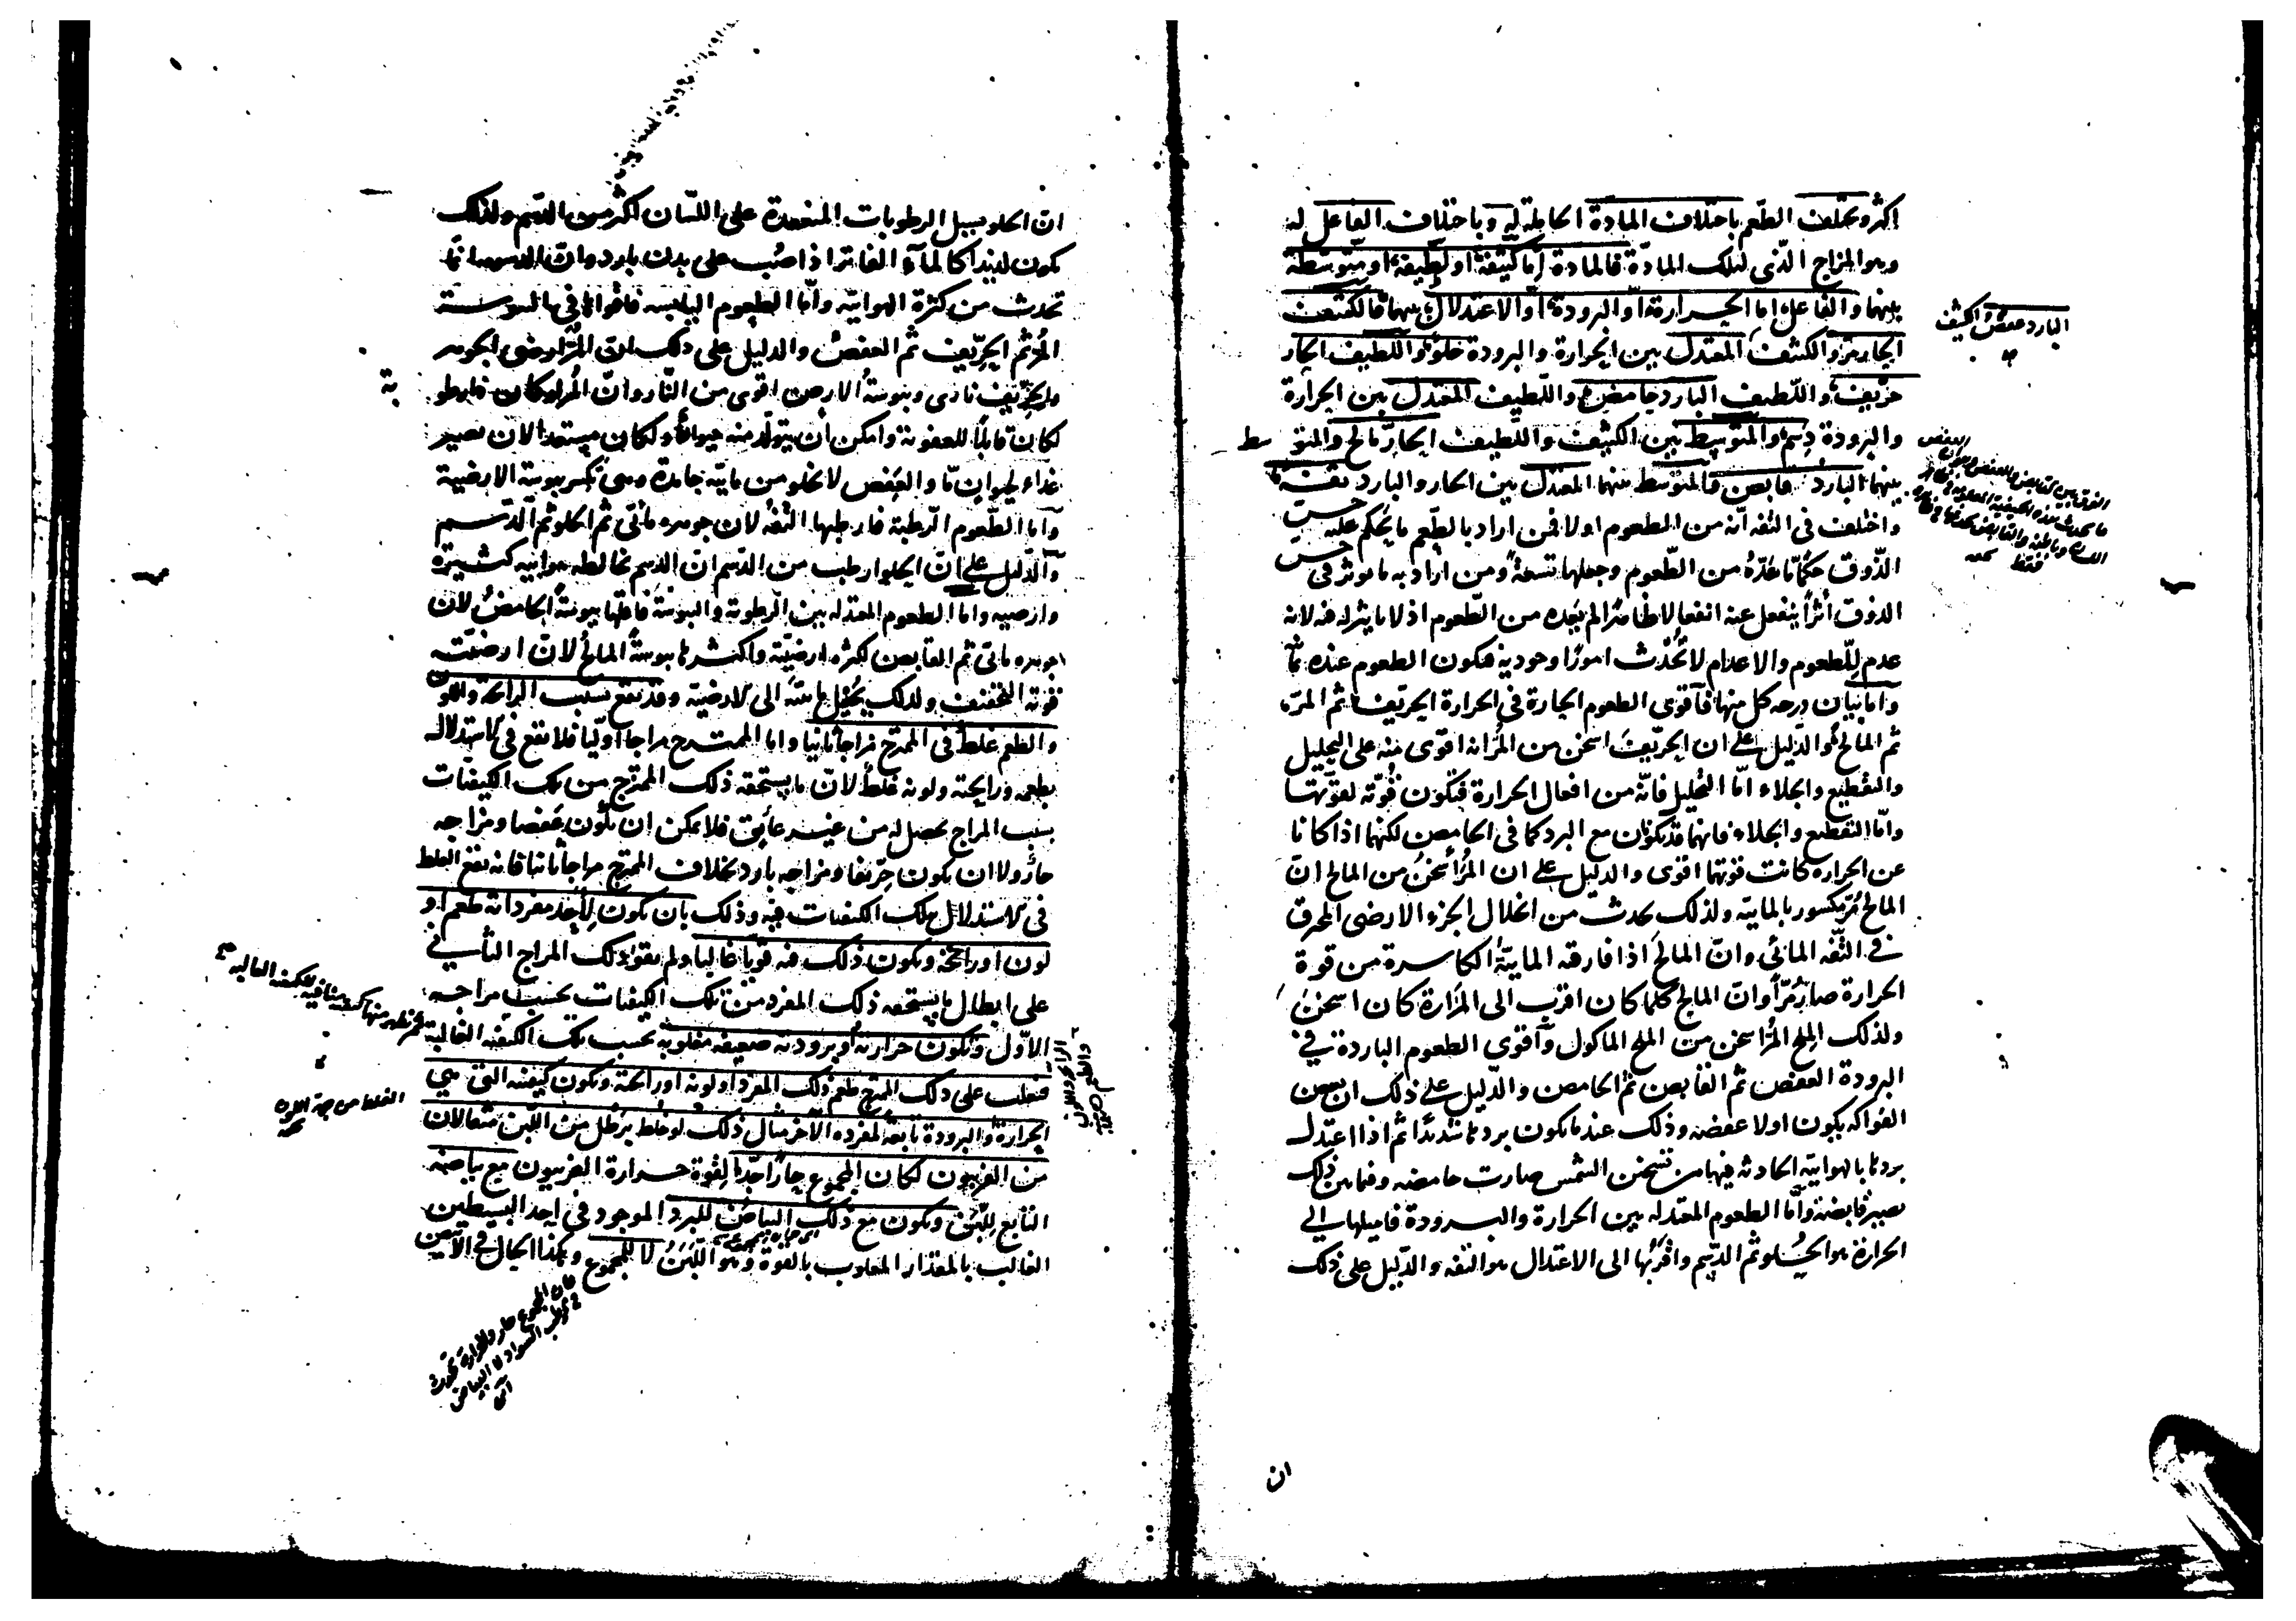 اكثر ويختلف الطعم باختلاف المادة الحاملة له وباختلاف الفاعل له
وهو المزاج الذى لتلك المادة فالمادة اما كثيفة او لطيفة او متوسطة
بينهما والفاعل اما الحرارة او البرودة او الاعتدال بينهما فالكثيف
الحار مر والكثيف المعتدل بين الحرارة والبرودة حلو واللطيف الحار
حريف واللطيف البارد حامض واللطيف المعتدل بين الحرارة
والبرودة دسم والمتوسط بين الكثيف واللطيف الحار مالح والمتوسط
بينهما البارد قابض فالمتوسط منهما المعتدل بين الحار والبارد تفه
واختلف فى التفه انه من الطعوم اولا فمن اراد بالطعم ما يحكم عليه حس
الذوق حكما ما عده من الطعوم وجعلها تسعة ومن اراد به ما يوثر فى حس
الذوق أثرا ينفعل عنه انفعالا ظاهرا لم يعده من الطعوم اذ لا تاثير له فيه لانه
عدم للطعوم والاعدام لا تحدث امورا وجودية فيكون الطعوم عنده ثمانية
واما بيان درجه كل منها فاقوى الطعوم الحارة فى الحرارة الحريف ثم المر
ثم المالح والدليل على ان الحريف اسخن من المر انه اقوى منه على التحليل
والتقطيع والجلاء اما التحليل فانه من افعال الحرارة فتكون قوته لقوتها
واما التقطيع والجلاء فانهما قد يكونان مع البرد كما فى الحامض لكنهما اذا كانا
عن الحراره كانت قوتهما اقوى والدليل على ان المر أسخن من المالح ان
المالح مر مكسور بالمايية ولذلك يحدث من انحلال الجزء الارضى المحرق
فى التفه المائى وان المالح اذا فارقه المايية الكاسرة من قوة
الحرارة صار مرا وان المالح كلما كان اقرب الى المرارة كان اسخن
ولذلك الملح المر اسخن من الملح الماكول وأقوى الطعوم الباردة فى
البرودة العفص ثم القابض ثم الحامض والدليل على ذلك ان بعض
الفواكه يكون اولا عفصه وذلك عندما يكون بردها شديدا ثم اذا اعتدل
بردها بالهوايية الحادثه فيها من تسخين الشمس صارت حامضه وفيما بين ذلك
تصير قابضة واما الطعوم المعتدله بين الحرارة والبرودة فاميلها الى
الحرارة هو الحلو ثم الدسم واقربها الى الاعتدال هو التفه والدليل على ذلك
ان
البارد عفص الكثيف
ان الحلو يسيل الرطوبات المنعقدة على اللسان اكثر من الدسم ولذلك
يكون لذيذا كالماء الفاتر اذا صب على بدن بارد وان الدسومه انما
تحدث من كثرة الهوائيه واما الطعوم اليابسه فاقواها فى اليبوسة
المر ثم الحريف ثم العفص والدليل على ذلك ان المر ارضى الجوهر
والحريف نارى ويبوسة الارض اقوى من النار وان المر لو كان فيه رطوبة
لكان قابلا للعفونة وامكن أن يتولد منه حيوان ولكان مستعدا لان يصير
غذاء لحيوان ما والعفص لا يخلو من مائية جامدة وهى تكسر يبوسة الارضية
وأما الطعوم الرطبة فارطبها التفه لان جوهره مائى ثم الحلو ثم الدسم
والدليل على ان الحلو ارطب من الدسم ان الدسم تخالطه هوائيه كثيرة
وارضيه واما الطعوم المعتدله بين الرطوبة واليبوسة فاقلها يبوسة الحامض لان
جوهره مائى ثم القابض لكثره ارضيته واكثرها يبوسة المالح لان ارضيته
قوية التجفيف ولذلك يحيل مائيته الى الارضية وقد يقع بسبب الرائحة واللون
والطعم غلط فى الممتزج مزاجا ثانيا واما الممتزج مزاجا أوليا فلا يقع فى الاستدلال
بطعمه ورايحته ولونه غلط لان ما يستحقه ذلك الممتزج من تلك الكيفيات
بسبب المزاج يحصل له من غير عايق فلا يمكن ان يكون عفصا ومزاجه
حار ولا ان يكون حريفا ومزاجه بارد بخلاف الممتزج مزاجا ثانيا فانه يقع الغلط
فى الاستدلال بتلك الكيفيات فيه وذلك بان يكون لأحد مفرداته طعم او
لون او رائحة ويكون ذلك فيه قويا غالبا ولم يقو ذلك المزاج الثانى
على ابطال ما يستحقه ذلك المفرد من تلك الكيفيات بحسب مزاجه
الاول ويكون حرارته أو برودته ضعيفه مغلوبة بحسب تلك الكيفية الغالبة
فيغلب على ذلك الممتزج طعم ذلك المفرد او لونه او رائحة ويكون كيفيته التى هى
الحرارة والبرودة تابعة لمفرده الآخر مثال ذلك لو خلط برطل من اللبن مثقالان
من الفربيون لكان المجموع حارا جدا لقوة حرارة الفربيون مع بياضه
التابع للبن ويكون مع ذلك البياض للبرد الموجود فى احد البسيطين
الغالب بالمقدار المغلوب بالقوة وهو اللبن لا للمجموع وهكذا الحال فى الآخر من
الغلط من جهة اللون